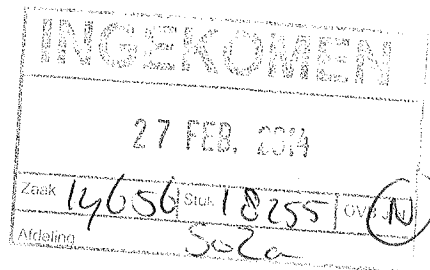 INGEKOMEN
27 FEB. 2014
Zaak 14656 Stuk 18255 OVB J/N
Afdeling SoZa